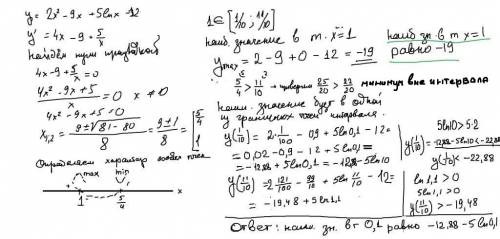 y = 2x² - 9x + 5lnx - 12
y' = 4x - 9 + 5/x
Находим нули производной
4x - 9 + 5/x = 0
(4x² - 9x + 5)/x = 0 x ≠ 0
4x² - 9x + 5 = 0
x₁,₂ = (9 ± √(81 - 80))/8 = (9 ± 1)/8 = [5/4
1
Определяем характер особых точек
+ max - min +
1 5/4 x
1 ∈ [1/10; 11/10]
наиб значение в т. x = 1
y max = 2 - 9 + 0 - 12 = -19
наиб. зн. в т x = 1
равно -19
5/4 > 11/10 25/20 > 22/20 минимум вне интервала
Наим. значение будет в одной
из граничных точек интервала.
y(1/10) = 2·1/100 - 0,9 + 5ln0,1 - 12 =
= 0,02 - 0,9 - 12 + 5ln0,1 =
= -12,88 + 5ln0,1 = -12,88 - 5ln10
y(11/10) = 2·121/100 - 99/10 + 5ln 11/10 - 12 =
= -19,48 + 5ln1,1
5ln10 > 5·2
y(1/10) = -12,88 - 5ln10 < -22,88
y(1/10) < -22,88
ln1,1 > 0
5ln1,1 > 0
y(11/10) > -19,48
Ответ: наим. зн. в т 0,1 равно -12,88 - 5ln0,1